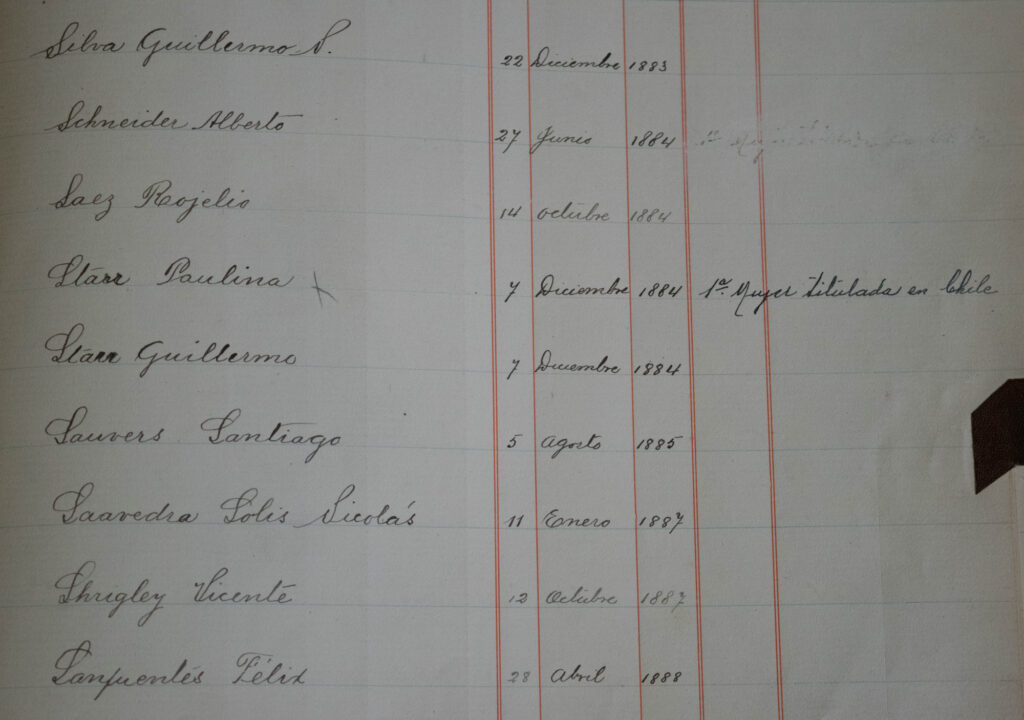 Silva Guillermo N. 22 Diciembre 1883
Schneider Alberto 27 Junio 1884
Saez Rojelio 14 octubre 1884
Starr Paulina 7 Diciembre 1884 1ª. Mujer titulada en Chile
Starr Guillermo 7 Diciembre 1884
Sauvers Santiago 5 agosto 1885
Saavedra Solis Nicolás 11 Enero 1887
Shrigley Vicente 12 Octubre 1887
Sanfuentes Félix 28 Abril 1888